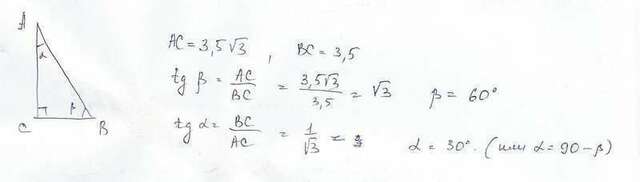 A
α
C
β
B
AC = 3,5√3 , BC = 3,5
tg β = AC/BC = 3,5√3/3,5 = √3 β = 60°
tg α = BC/AC = 1/√3 = α = 30°. (или α = 90 - β)